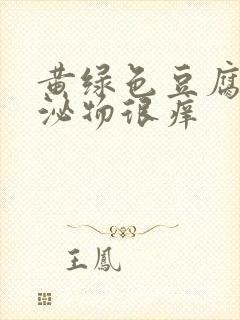 黄绿色豆腐
泌物很痒
王鳳